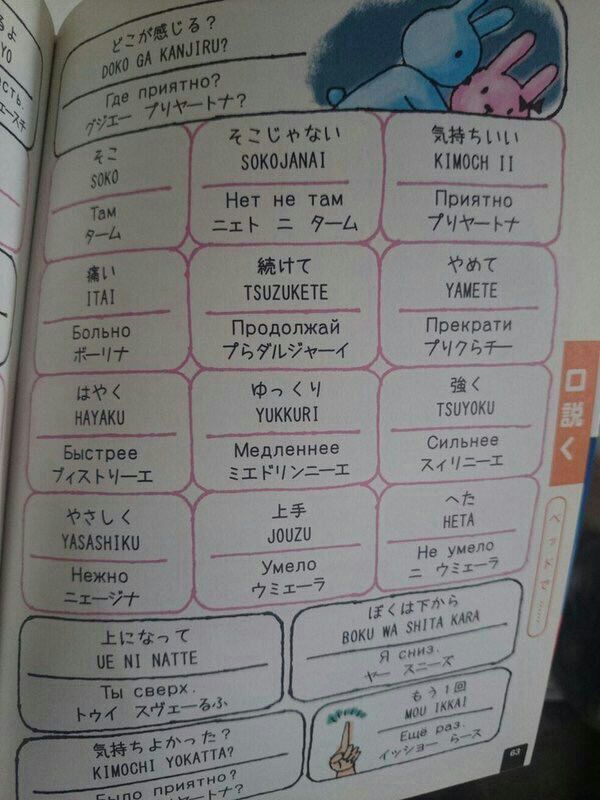 るよ
YO
ость.
ェースチ
どこが感じる？
DOKO GA KANJIRU?
Где приятно?
グジエー プリヤートナ？
そこ
SOKO
Там
ターム
そこじゃない
SOKOJANAI
Нет не там
ニェト ニ ターム
気持ちいい
KIMOCH II
Приятно
プリヤートナ
痛い
ITAI
Больно
ボーリナ
続けて
TSUZUKETE
Продолжай
プらダルジャーイ
やめて
YAMETE
Прекрати
プりクらチー
はやく
HAYAKU
Быстрее
ブィストリーエ
ゆっくり
YUKKURI
Медленнее
ミエドリンニーエ
強く
TSUYOKU
Сильнее
スィリニーエ
やさしく
YASASHIKU
Нежно
ニェージナ
上手
JOUZU
Умело
ウミェーラ
へた
HETA
Не умело
ニ ウミェーラ
上になって
UE NI NATTE
Ты сверх.
トゥイ スヴェーるふ
ぼくは下から
BOKU WA SHITA KARA
Я сниз.
ヤー スニーズ
もう1回
MOU IKKAI
Ещё раз.
イッショー らース
気持ちよかった？
KIMOCHI YOKATTA?
Было приятно?
口説く
ベッドで……
63